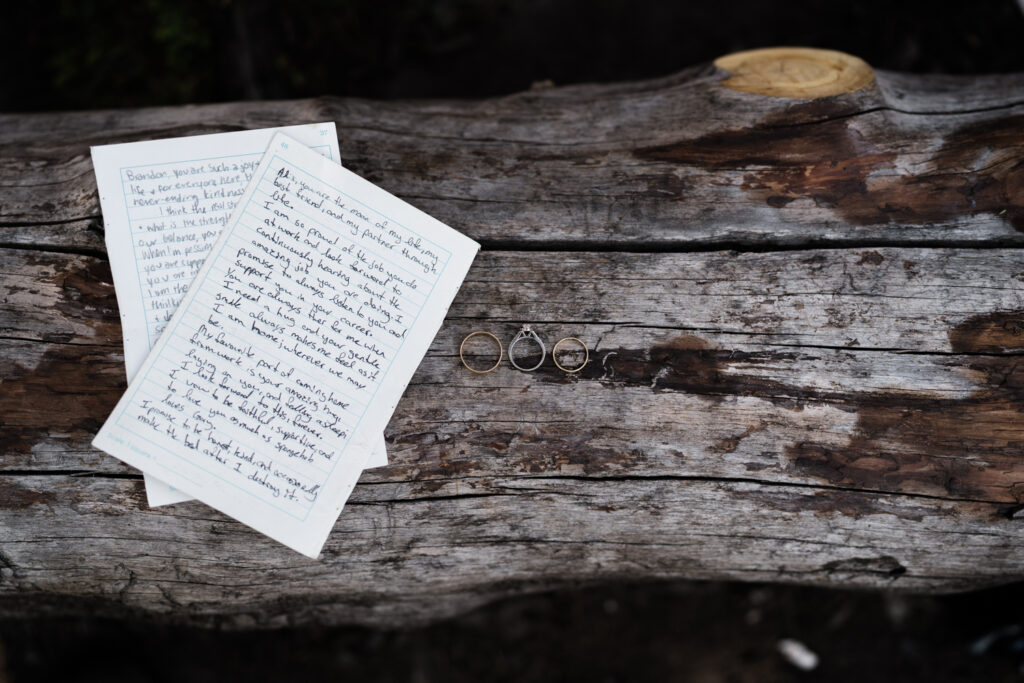 37
Brandon, you are such a joy
life + for everyone here
never-ending kindness
I think the real
• what is the
our balance, you
When I'm
you are
you are
I am the
46
you are the man of my life, my
best friend, and my partner through
life.
I am so proud of the job you do
at work and look forward to
continuously hearing about the
amazing job you are doing. I
promise to always listen to you and
support you in your career.
You are always there for me when
I need a hug and your gentle
smile always makes me feel as if
I am home; wherever we may
be.
My favourite part of coming home
from work is your amazing hug,
laying on you, and falling asleep.
I look forward to this, forever.
I vow to be faithful, supportive, and
to love you as much as spongebob
loves Gary.
I promise to be honest, loyal, and occasionally
make the bed after I destroy it.